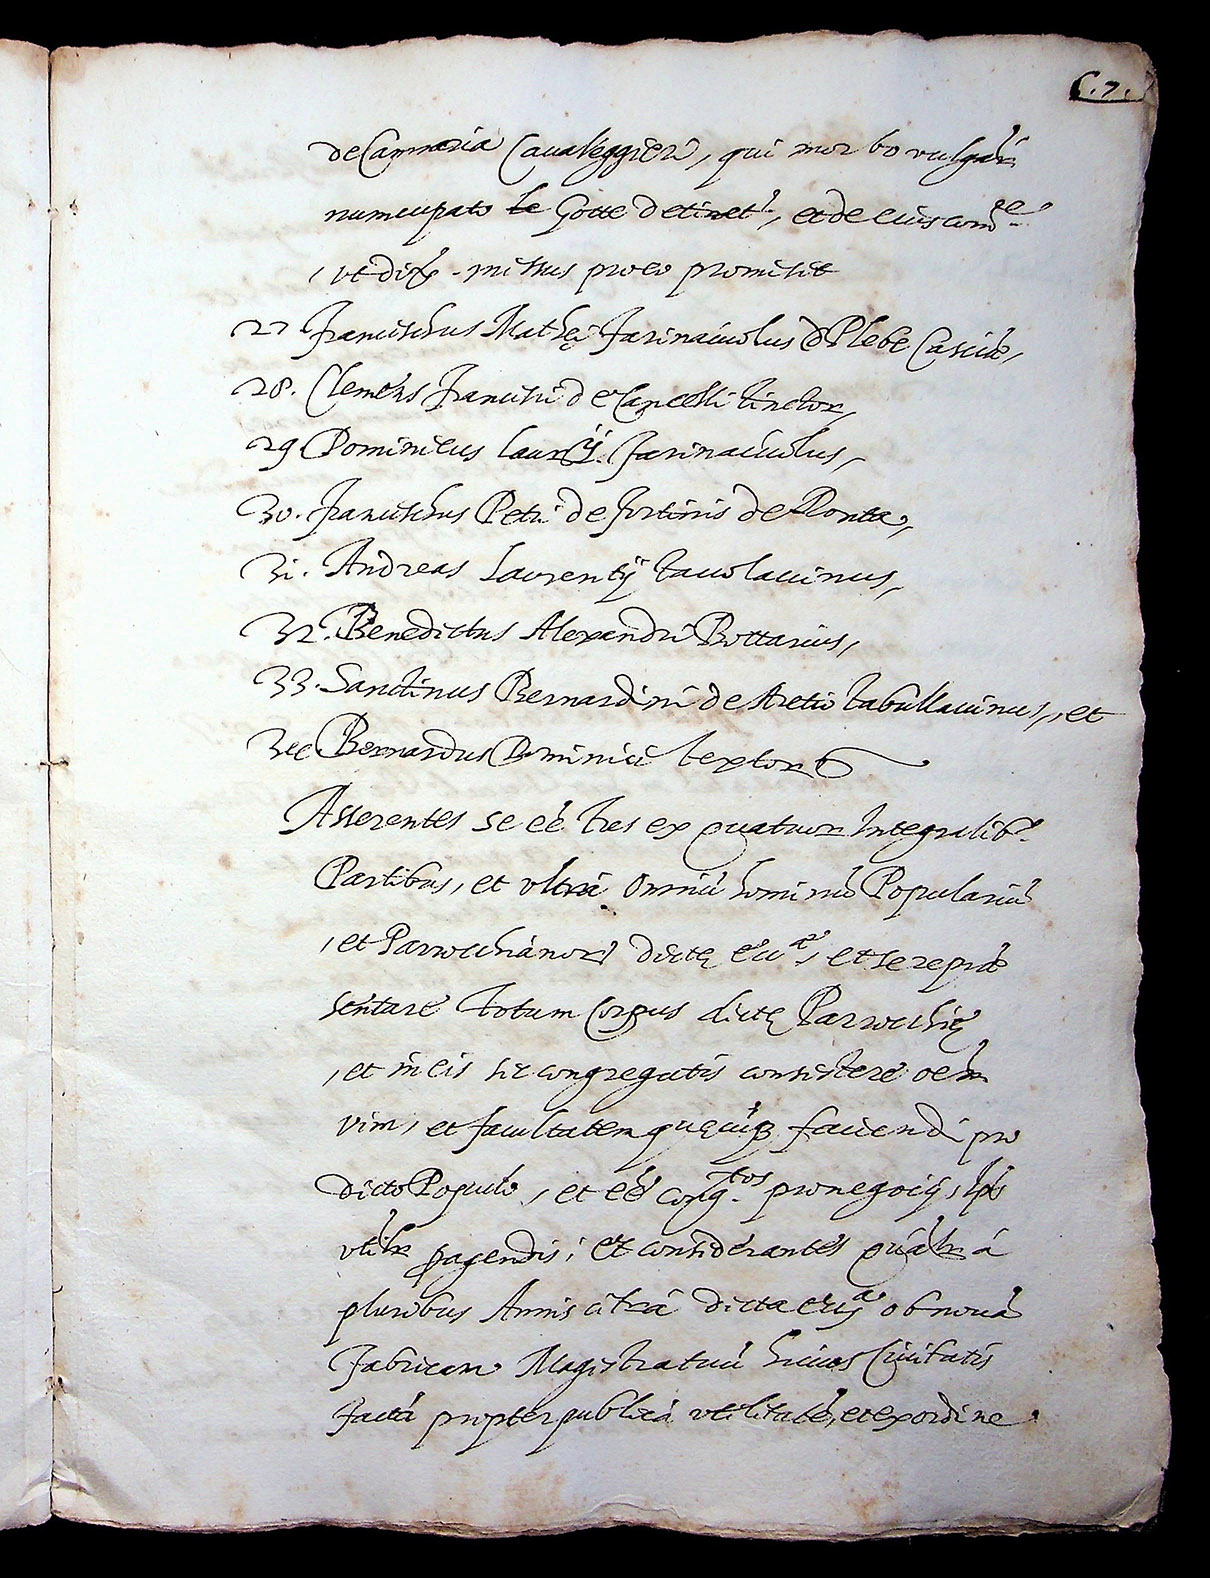 C. 7.
de Cammaria Cavaleggieri, qui morbo vulgar
nuncupato le Gotte detinet.r, et de eius com.e
, ut dix. mitt pro eo promisit
27 Francischus Mathei Farinaiuolus d Plebe Casciæ,
28. Clemens Francisci de Cancelli tinctor,
29 Dominicus Laurẽtij Farinaiuolus,
30. Francischus Petri de Fortinis de Ronta,
31. Andreas Laurentij tavolaccinus,
32. Benedictus Alexandri Bottarius,
33. Sanctinus Bernardini de Aretio tabullaccinus, et
34 Bernardus Dominici textor
Asserentes se eẽ tres ex quatuor Integralib.s
Partibus, et ultrà omniũ hominũ Populariũ
, et Parrocchianor dictę ecc.æ, et se repræ
sentare totum Corpus dictę Parrocchię
, et in eis sic congregatis consistere oem
vim, et facultatem quęcuq faciendi pro
dicto Populo, et eẽ cong.tos pro negocijs, ips
utilr pagendis; et considerantes qualr à
pluribus Annis citrà dicta eccl.a ob novã
Fabricam Magistratuũ huius Civitatis
factã propter publicã utilitatẽ, et ex ordine